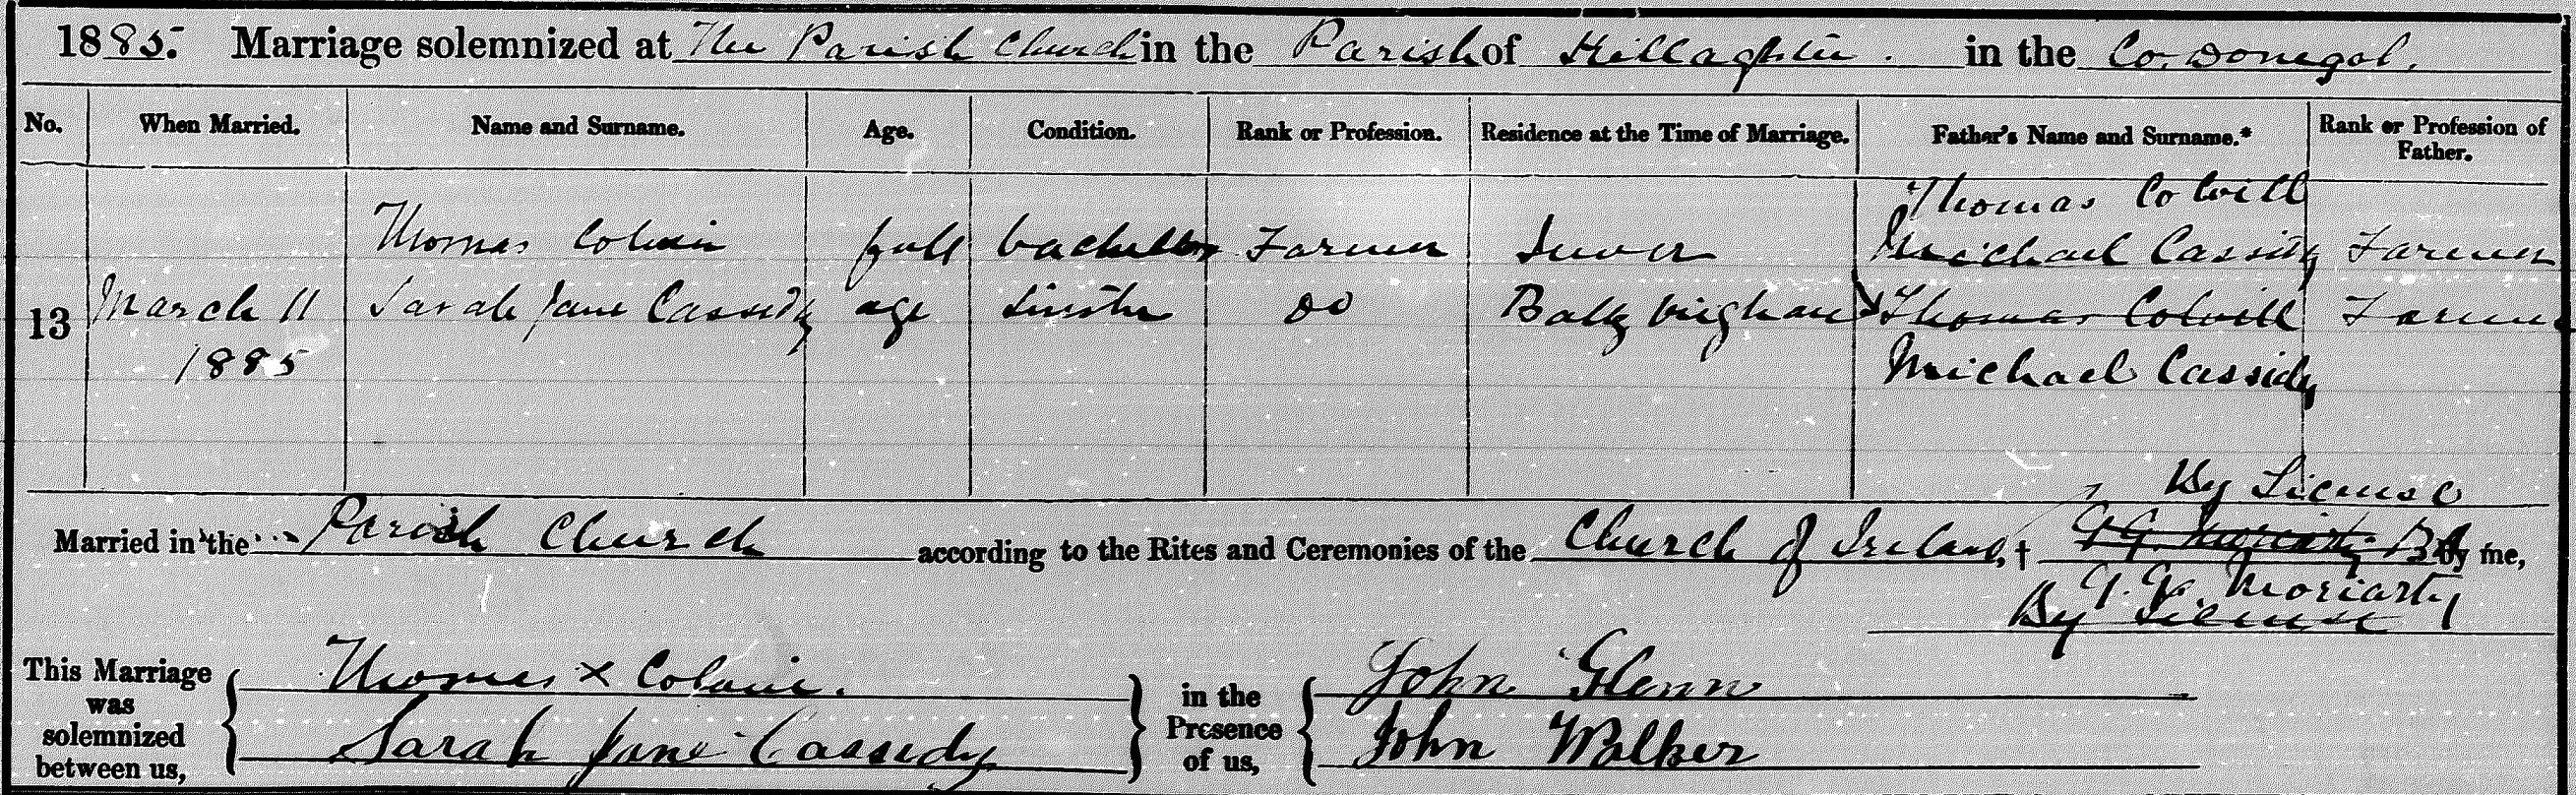 1885. Marriage solemnized at The Parish Church in the Parish of Killaghtee. in the Co. Donegal.
No. When Married. Name and Surname. Age. Condition. Rank or Profession. Residence at the Time of Marriage. Father's Name and Surname.* Rank or Profession of Father.
Thomas Colvill
Thomas Colvin full bachellor Farmer Michael Cassidy Farmer
13 March 11 Sarah Jane Cassidy age Do Thomas Colvill Farmer
1885 Michael Cassidy
By License
Married in the Parish Church according to the Rites and Ceremonies of the Church of Ireland, † Moriarty by me,
Moriarty
By License
This Marriage was solemnized between us, { Thomas x Colvin. } in the Presence of us, { John Glenn
Sarah Jane Cassidy John Walker